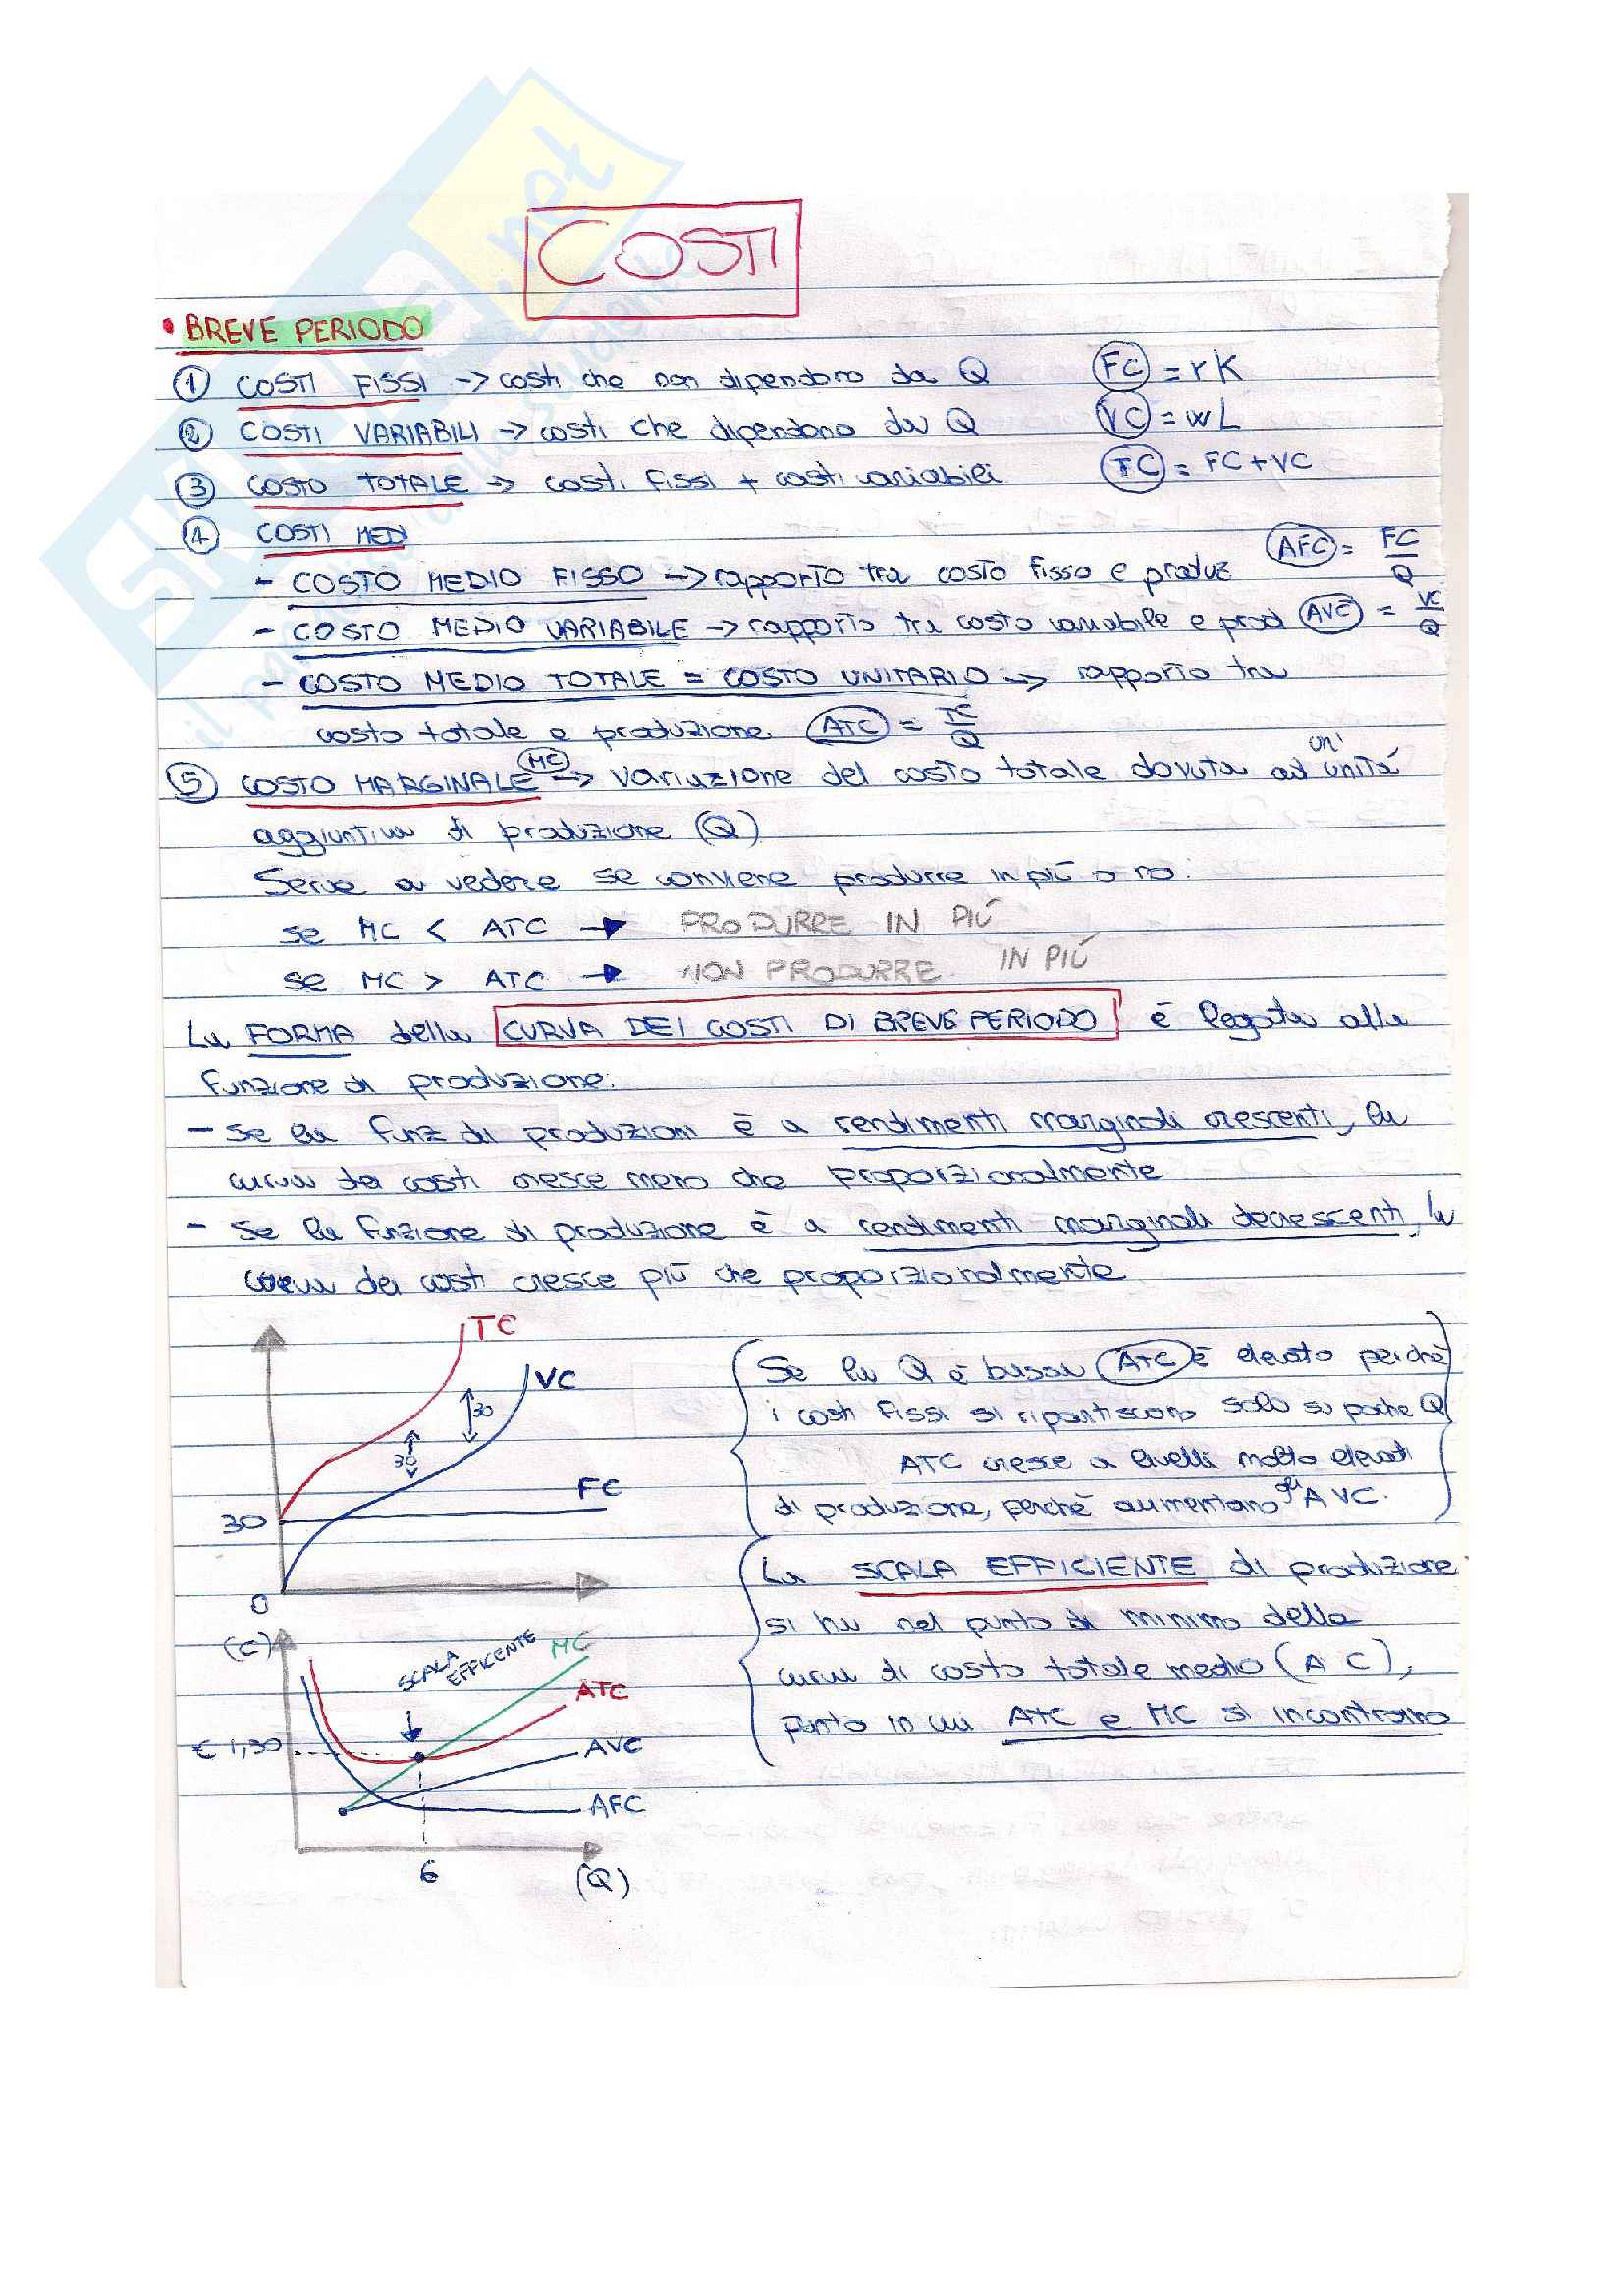 SKUOLA.net
COSTI
• BREVE PERIODO
① COSTI FISSI -> costi che non dipendono da Q FC = rK
② COSTI VARIABILI -> costi che dipendono da Q VC = wL
③ COSTO TOTALE -> costi fissi + costi variabili TC = FC + VC
④ COSTI MEDI
- COSTO MEDIO FISSO -> rapporto tra costo fisso e produz AFC = FC/Q
- COSTO MEDIO VARIABILE -> rapporto tra costo variabile e prod AVC = VC/Q
- COSTO MEDIO TOTALE = COSTO UNITARIO -> rapporto tra
costo totale e produzione. ATC = TC/Q
⑤ COSTO MARGINALE MC -> variazione del costo totale dovuta ad un' unità
aggiuntiva di produzione (Q)
Serve a vedere se conviene produrre in più o no:
se MC < ATC → PRODURRE IN PIÚ
se MC > ATC → NON PRODURRE IN PIÚ
La FORMA della CURVA DEI COSTI DI BREVE PERIODO è legata alla
funzione di produzione:
- Se la funz di produzioni è a rendimenti marginali crescenti, la
curva dei costi cresce meno che proporzionalmente
- Se la funzione di produzione è a rendimenti marginali decrescenti, la
curva dei costi cresce più che proporzionalmente
TC
VC
30
30
FC
30
0
Se la Q è bassa ATC è elevato perchè
i costi fissi si ripartiscono solo su poche Q
ATC cresce a livelli molto elevati
di produzione, perchè aumentano gli AVC.
La SCALA EFFICIENTE di produzione
si ha nel punto di minimo della
curva di costo totale medio (A C),
punto in cui ATC e MC si incontrano
(C)
SCALA EFFICENTE
MC
ATC
€ 1,30
AVC
AFC
6
(Q)